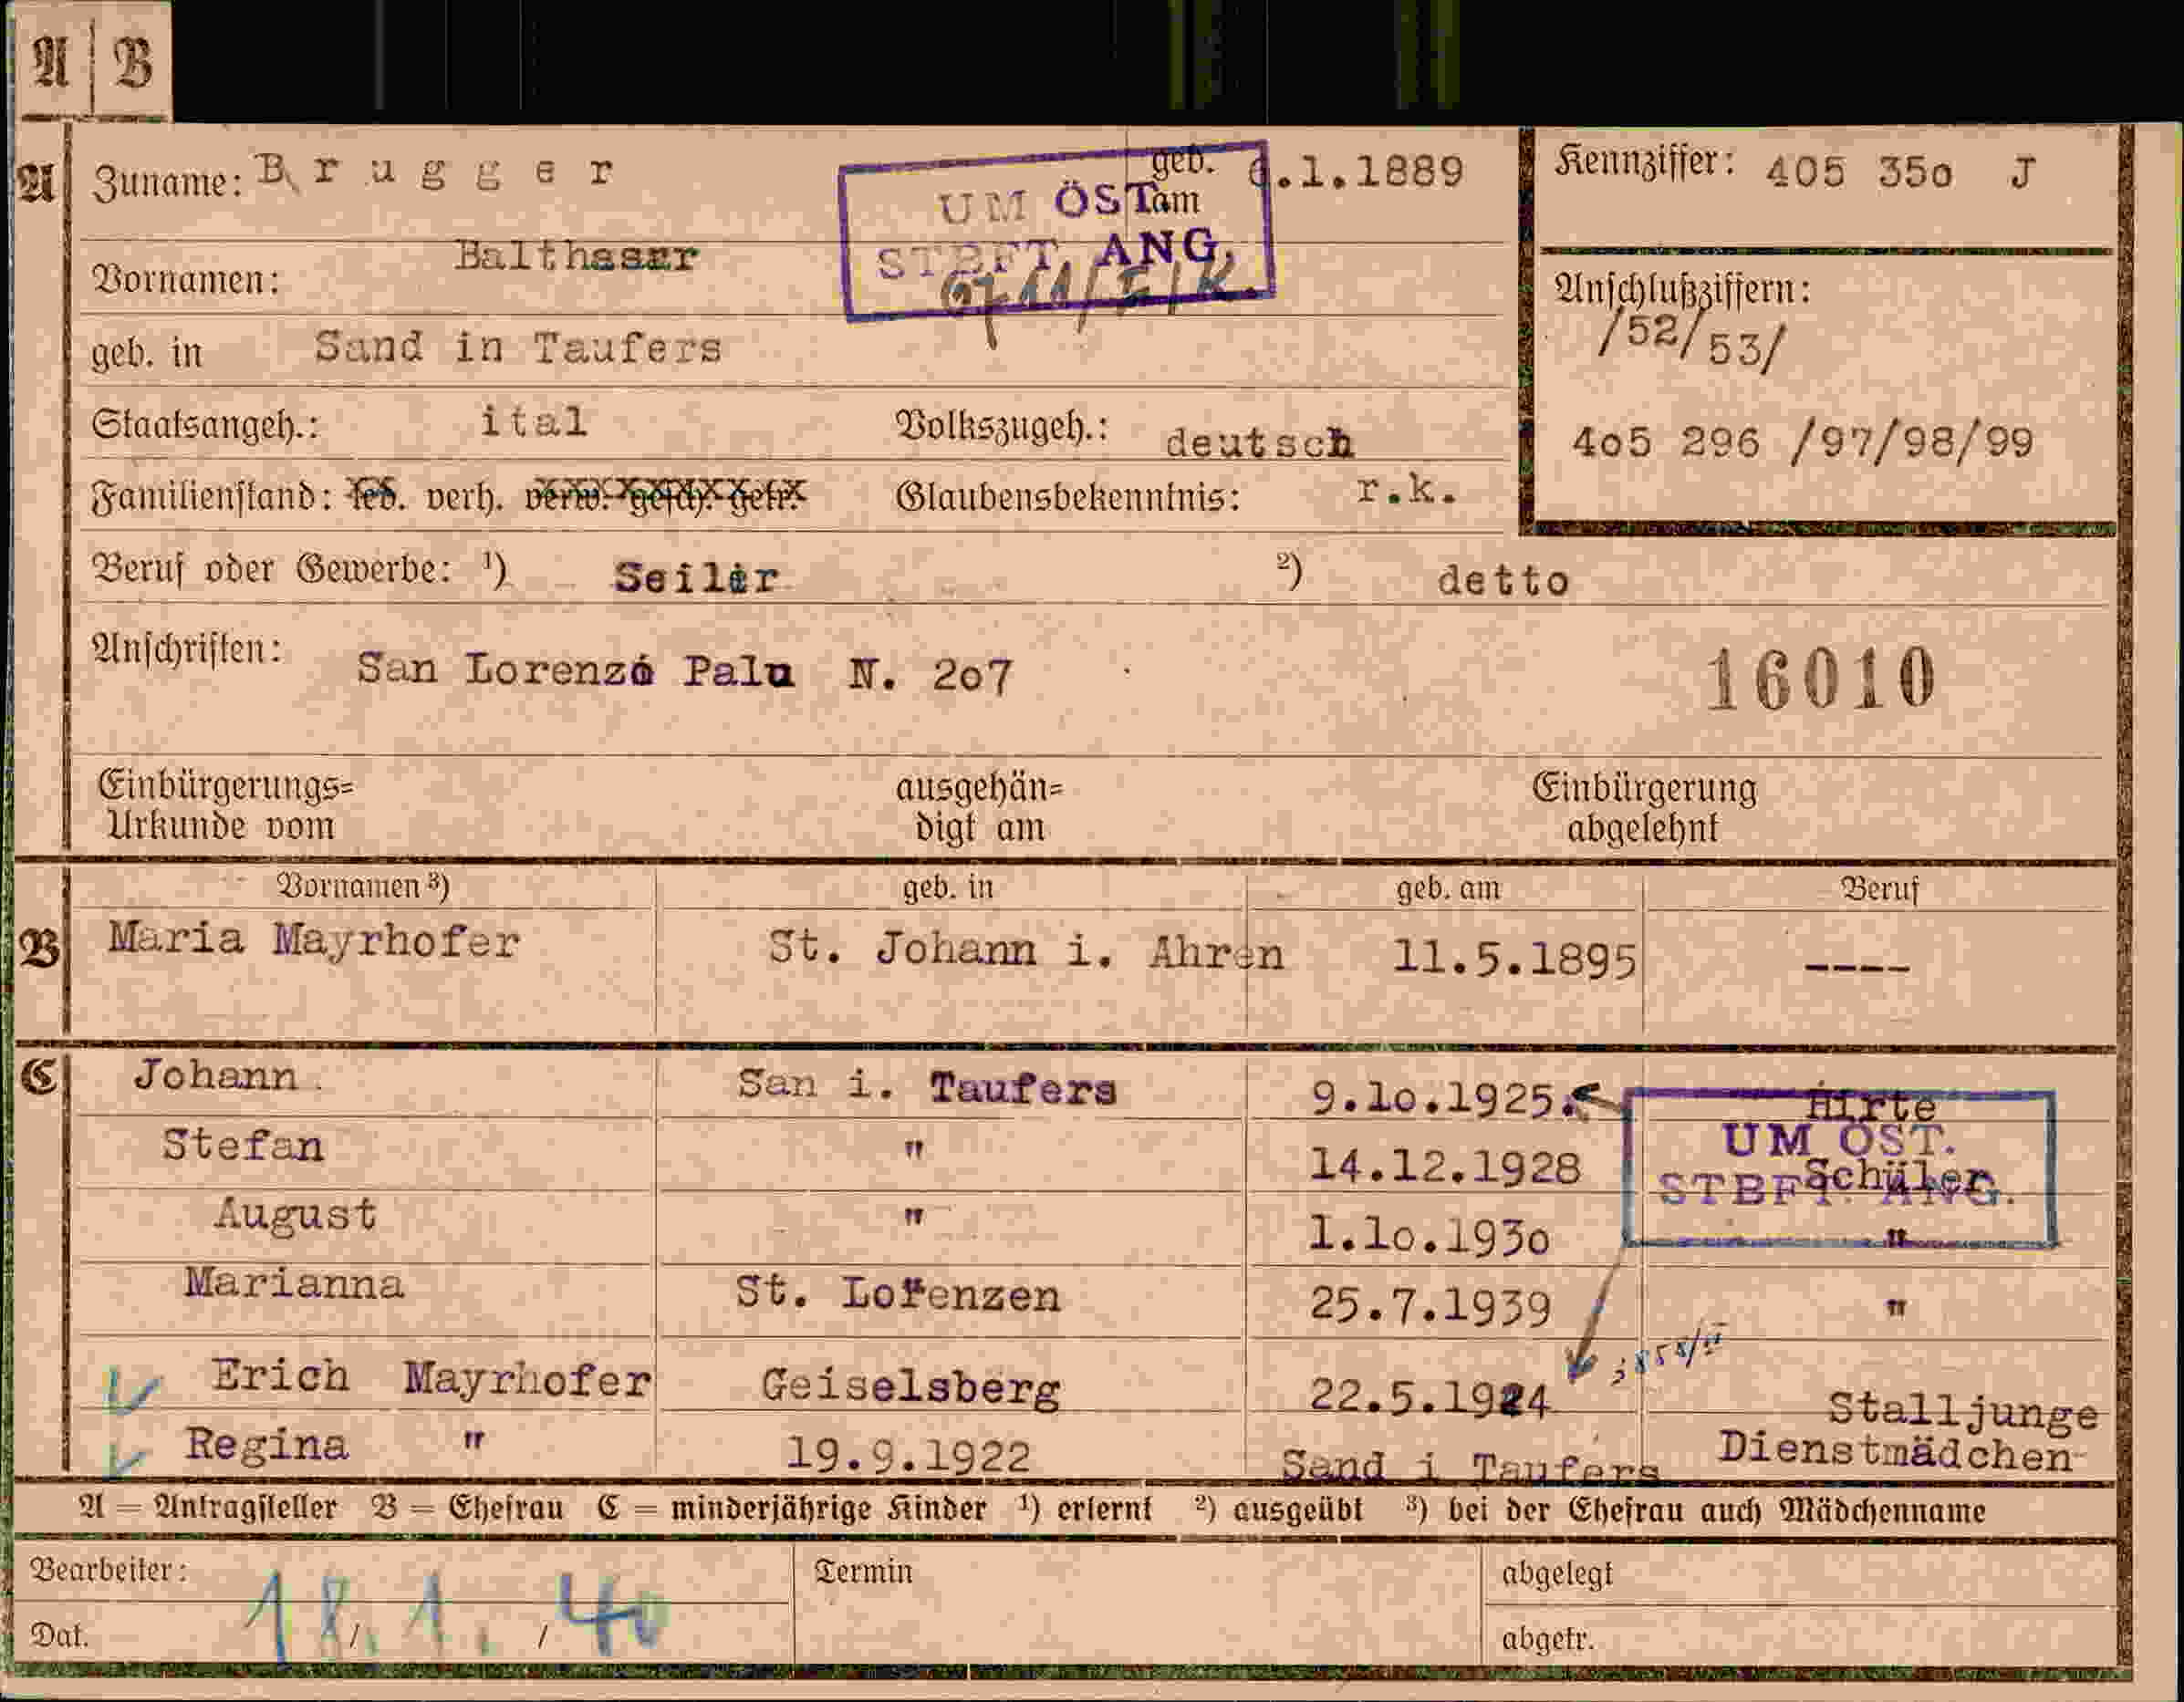 A | B
A Zuname: Brugger geb. am 6.1.1889 Kennziffer: 405 35o J
UM ÖST.
STBFT. ANG.
Vornamen: Balthasar
Anschlußziffern:
/52/53/
geb. in Sand in Taufers
4o5 296 /97/98/99
Staatsangeh.: ital Volkszugeh.: deutsch
Familienstand: led. verh. verw. gesch. getr. Glaubensbekenntnis: r.k.
Beruf oder Gewerbe: ¹) Seiler ²) detto
Anschriften: San Lorenzo Palu N. 2o7
16010
Einbürgerungs= Urkunde vom ausgehän= digt am Einbürgerung abgelehnt
Vornamen ³) geb. in geb. am Beruf
B Maria Mayrhofer St. Johann i. Ahren 11.5.1895 ----
C Johann San i. Taufers 9.1o.1925. Hirte
UM ÖST.
STBFT. ANG.
Stefan " 14.12.1928 Schüler
August " 1.1o.193o "
Marianna St. Lorenzen 25.7.1939 "
Erich Mayrhofer Geiselsberg 22.5.1924 Stalljunge
Regina " 19.9.1922 Sand i Taufers Dienstmädchen
A = Antragsteller B = Ehefrau C = minderjährige Kinder ¹) erlernt ²) ausgeübt ³) bei der Ehefrau auch Mädchenname
Bearbeiter: Termin abgelegt
Dat. 18. / 1. / 40 abgetr.